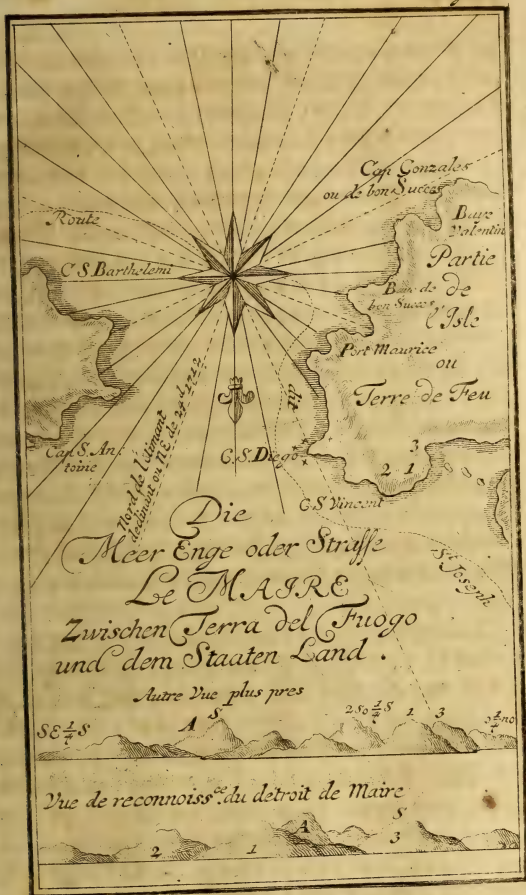 Cap Gonzales
ou de bon Succes
Route
Baye
Valentin
C. S. Barthelemi
Partie
de
l'Isle
ou
Terre de Feu
Baye de
bon Succes
Port Maurice
Cap S. An
toine
Nord de l'Aimant
declinant ou N.E. de 24d 1712
dit
C. S. Diego
3
2 1
C. S. Vincent
St. Joseph
Die
Meer Enge oder Strasse
Le MAIRE
Zwischen Terra del Fuogo
und dem Staaten Land.
Autre Vue plus pres
SE 1/4 S
A S
2 So 1/4 S 1 3
Vue de reconnoissce. du detroit de Maire
A S
2 1 3